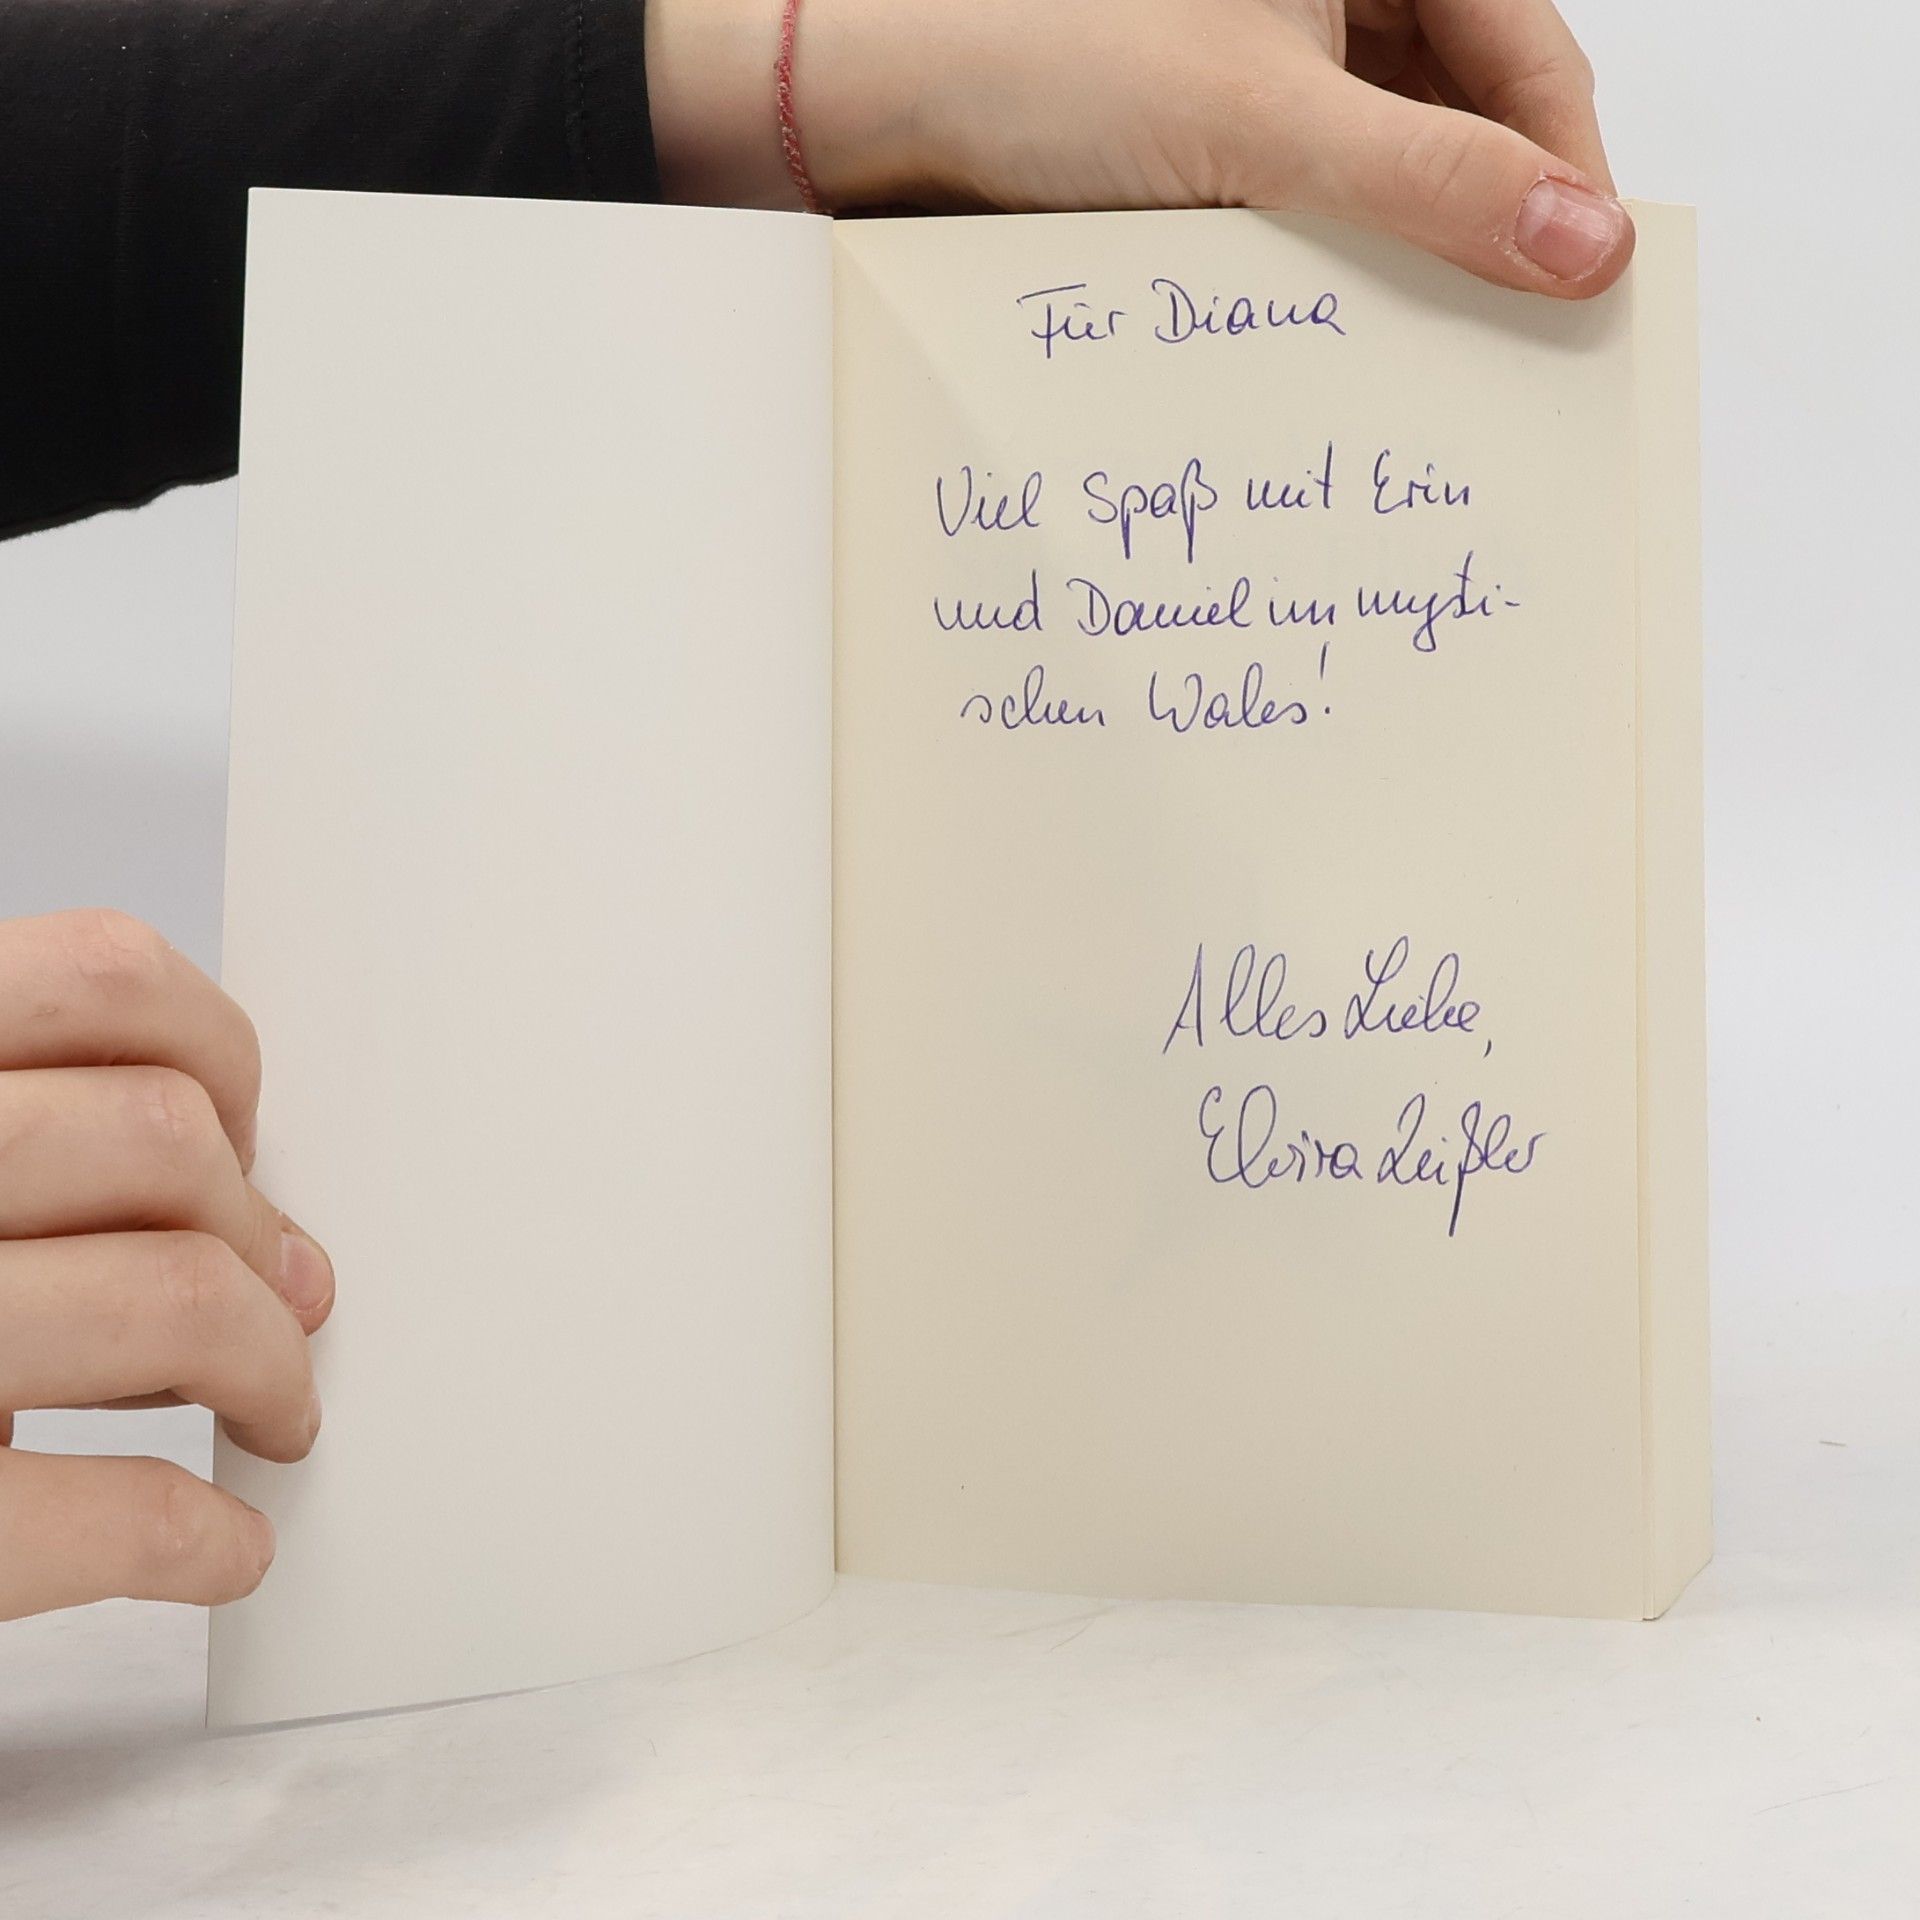 Für Diana
Viel Spaß mit Erin
und Daniel im mysti-
schen Wales!
Alles Liebe,
Elvira Zeißler